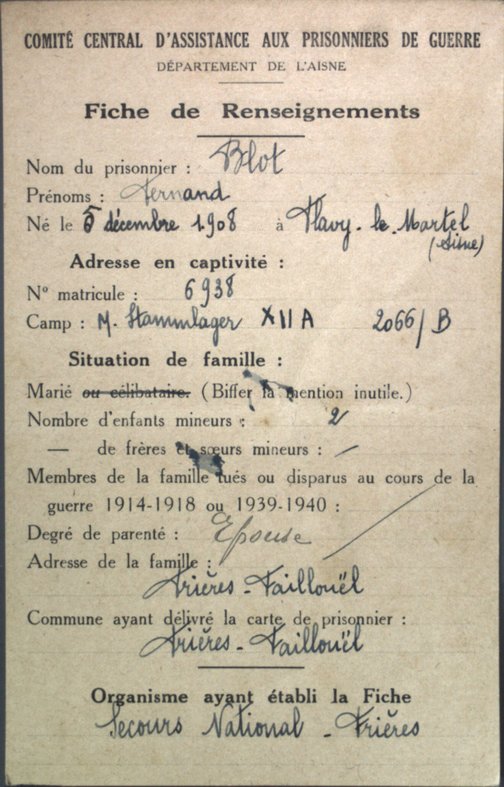 COMITÉ CENTRAL D'ASSISTANCE AUX PRISONNIERS DE GUERRE
DÉPARTEMENT DE L'AISNE
Fiche de Renseignements
Nom du prisonnier : Blot
Prénoms : Fernand
Né le 5 décembre 1908 à Flavy-le-Martel
(Aisne)
Adresse en captivité :
N° matricule : 6938
Camp : M. Stammlager XII A 2066/B
Situation de famille :
Marié ou célibataire. (Biffer la mention inutile.)
Nombre d'enfants mineurs : 2
— de frères et sœurs mineurs : —
Membres de la famille tués ou disparus au cours de la
guerre 1914-1918 ou 1939-1940 :
Degré de parenté : Epouse
Adresse de la famille :
Frières-Faillouël
Commune ayant délivré la carte de prisonnier :
Frières-Faillouël
Organisme ayant établi la Fiche
Secours National - Frières